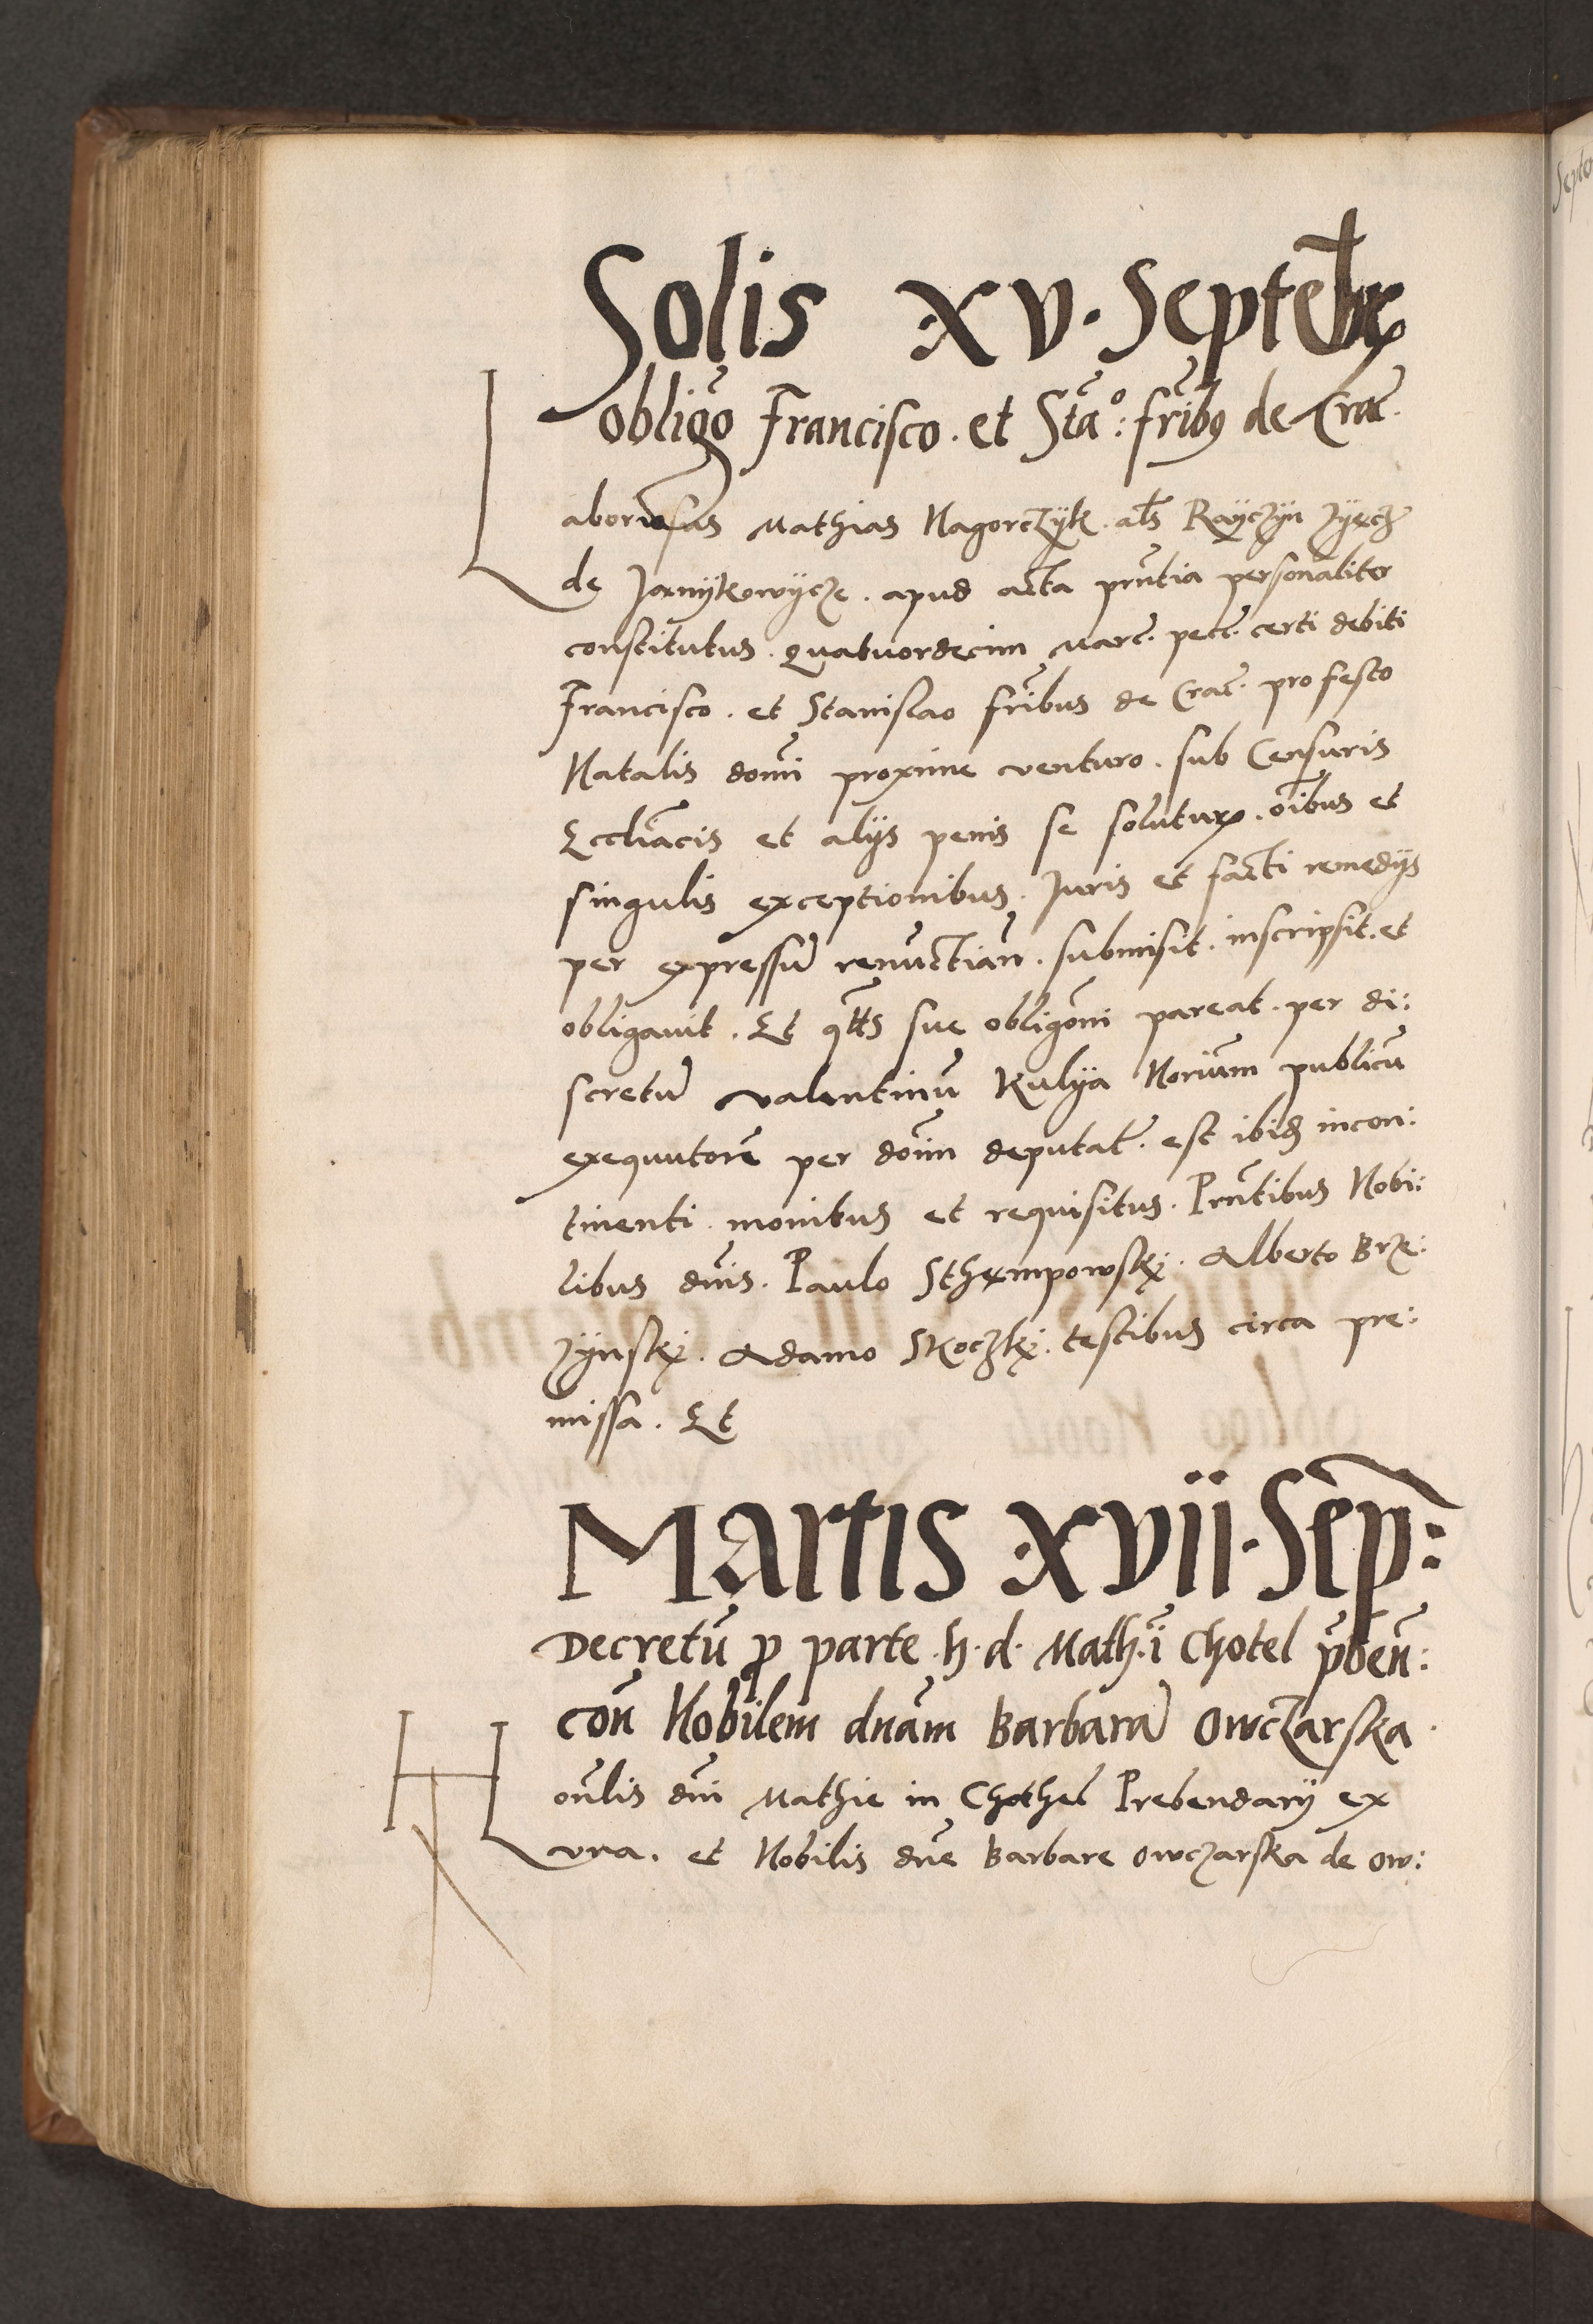 Solis XV. Septēbr
obligō Francisco. et Sta°: frībꝫ de Crac̄.
Laboriosus Mathias Nagorczÿk. als Rayczÿn
de Jaxnÿkowÿcze. apud acta prn̄tia personaliter
constitutus. quatuordecim Marc̄. pecc̄. certi debiti
Francisco. et Stanislao frībus de Crac̄. pro festo
Natalis domī proxime venturo. sub Censuris
Eccliācis et alijs penis se soluturꝫ. oībus et
singulis exceptionibus. Juris et facti remedijs
per expressū renūctiān. submisit. inscripsit. et
obligauit. Et qtt̄s sue obligōni pareat. per di:
scretū valentinū Kulÿa Noriūm publicū
exequutorē per doīm deputat̄. est ibiđ incon:
tinenti. monitus et requisitus. Prn̄tibus Nobi:
libus dnīs. Paulo Sthempowskÿ. Alberto Brze:
zÿnskÿ. Adamo Skoczkÿ. testibus circa pre:
missa. Et
Martis XVII. Sēp:
Decretū ꝓ parte .h. d. Math.ī Chotel p̄bēn:
con̄ Nobilem dnām Barbarā Owczarska.
Hon̄lis dnī Mathie in Chothel Prebendarÿ ex
vna. et Nobilis dnē Barbare Owczarska de Ow:
Septe